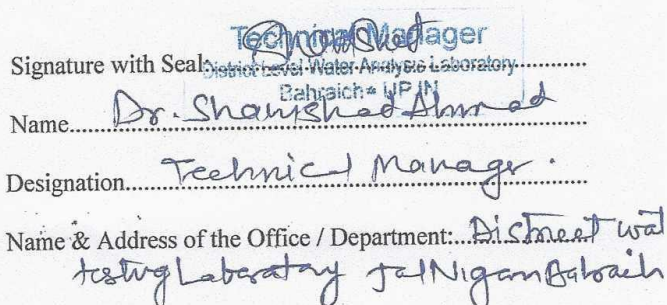 Technical Manager
Signature with Seal: District Level Water Analysis Laboratory
Bahraich * UP IN
Name....Dr. Shamshad Ahmad
Designation....Technical Manager.
Name & Address of the Office / Department:...District wat
testing Laboratory Jal Nigam Bahraich